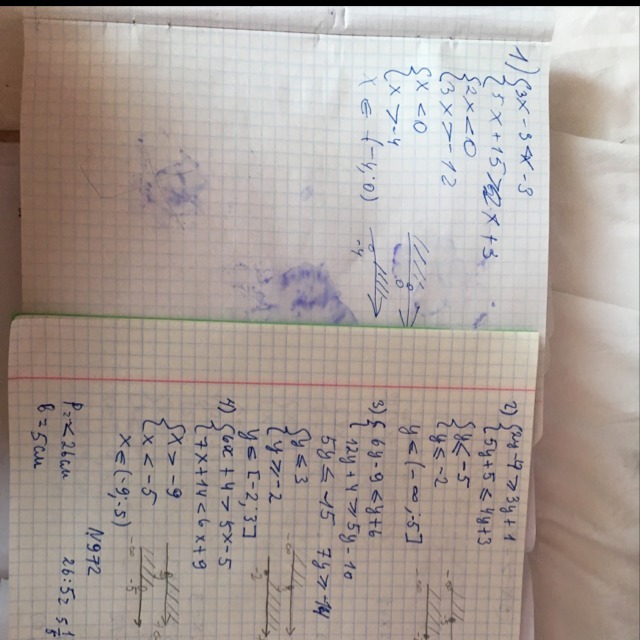 1) { 3x - 3 < x - 3
{ 5x + 15 > 2x + 3
{ 2x < 0
{ 3x > -12
{ x < 0
{ x > -4
x ∈ (-4; 0)
0
-4
2) { 2y - 4 > 3y + 1
{ 5y + 5 ≤ 4y + 3
{ y < -5
{ y ≤ -2
y ∈ (-∞; -5]
3) { 6y - 9 < y + 6
{ 12y + 4 > 5y - 10
5y ≤ 15 7y > -14
{ y ≤ 3
{ y > -2
y ∈ [-2; 3]
4) { 6x + 4 > 5x - 5
{ 7x + 14 < 6x + 9
{ x > -9
{ x < -5
x ∈ (-9; -5)
N972
p = < 26см
в = 5см